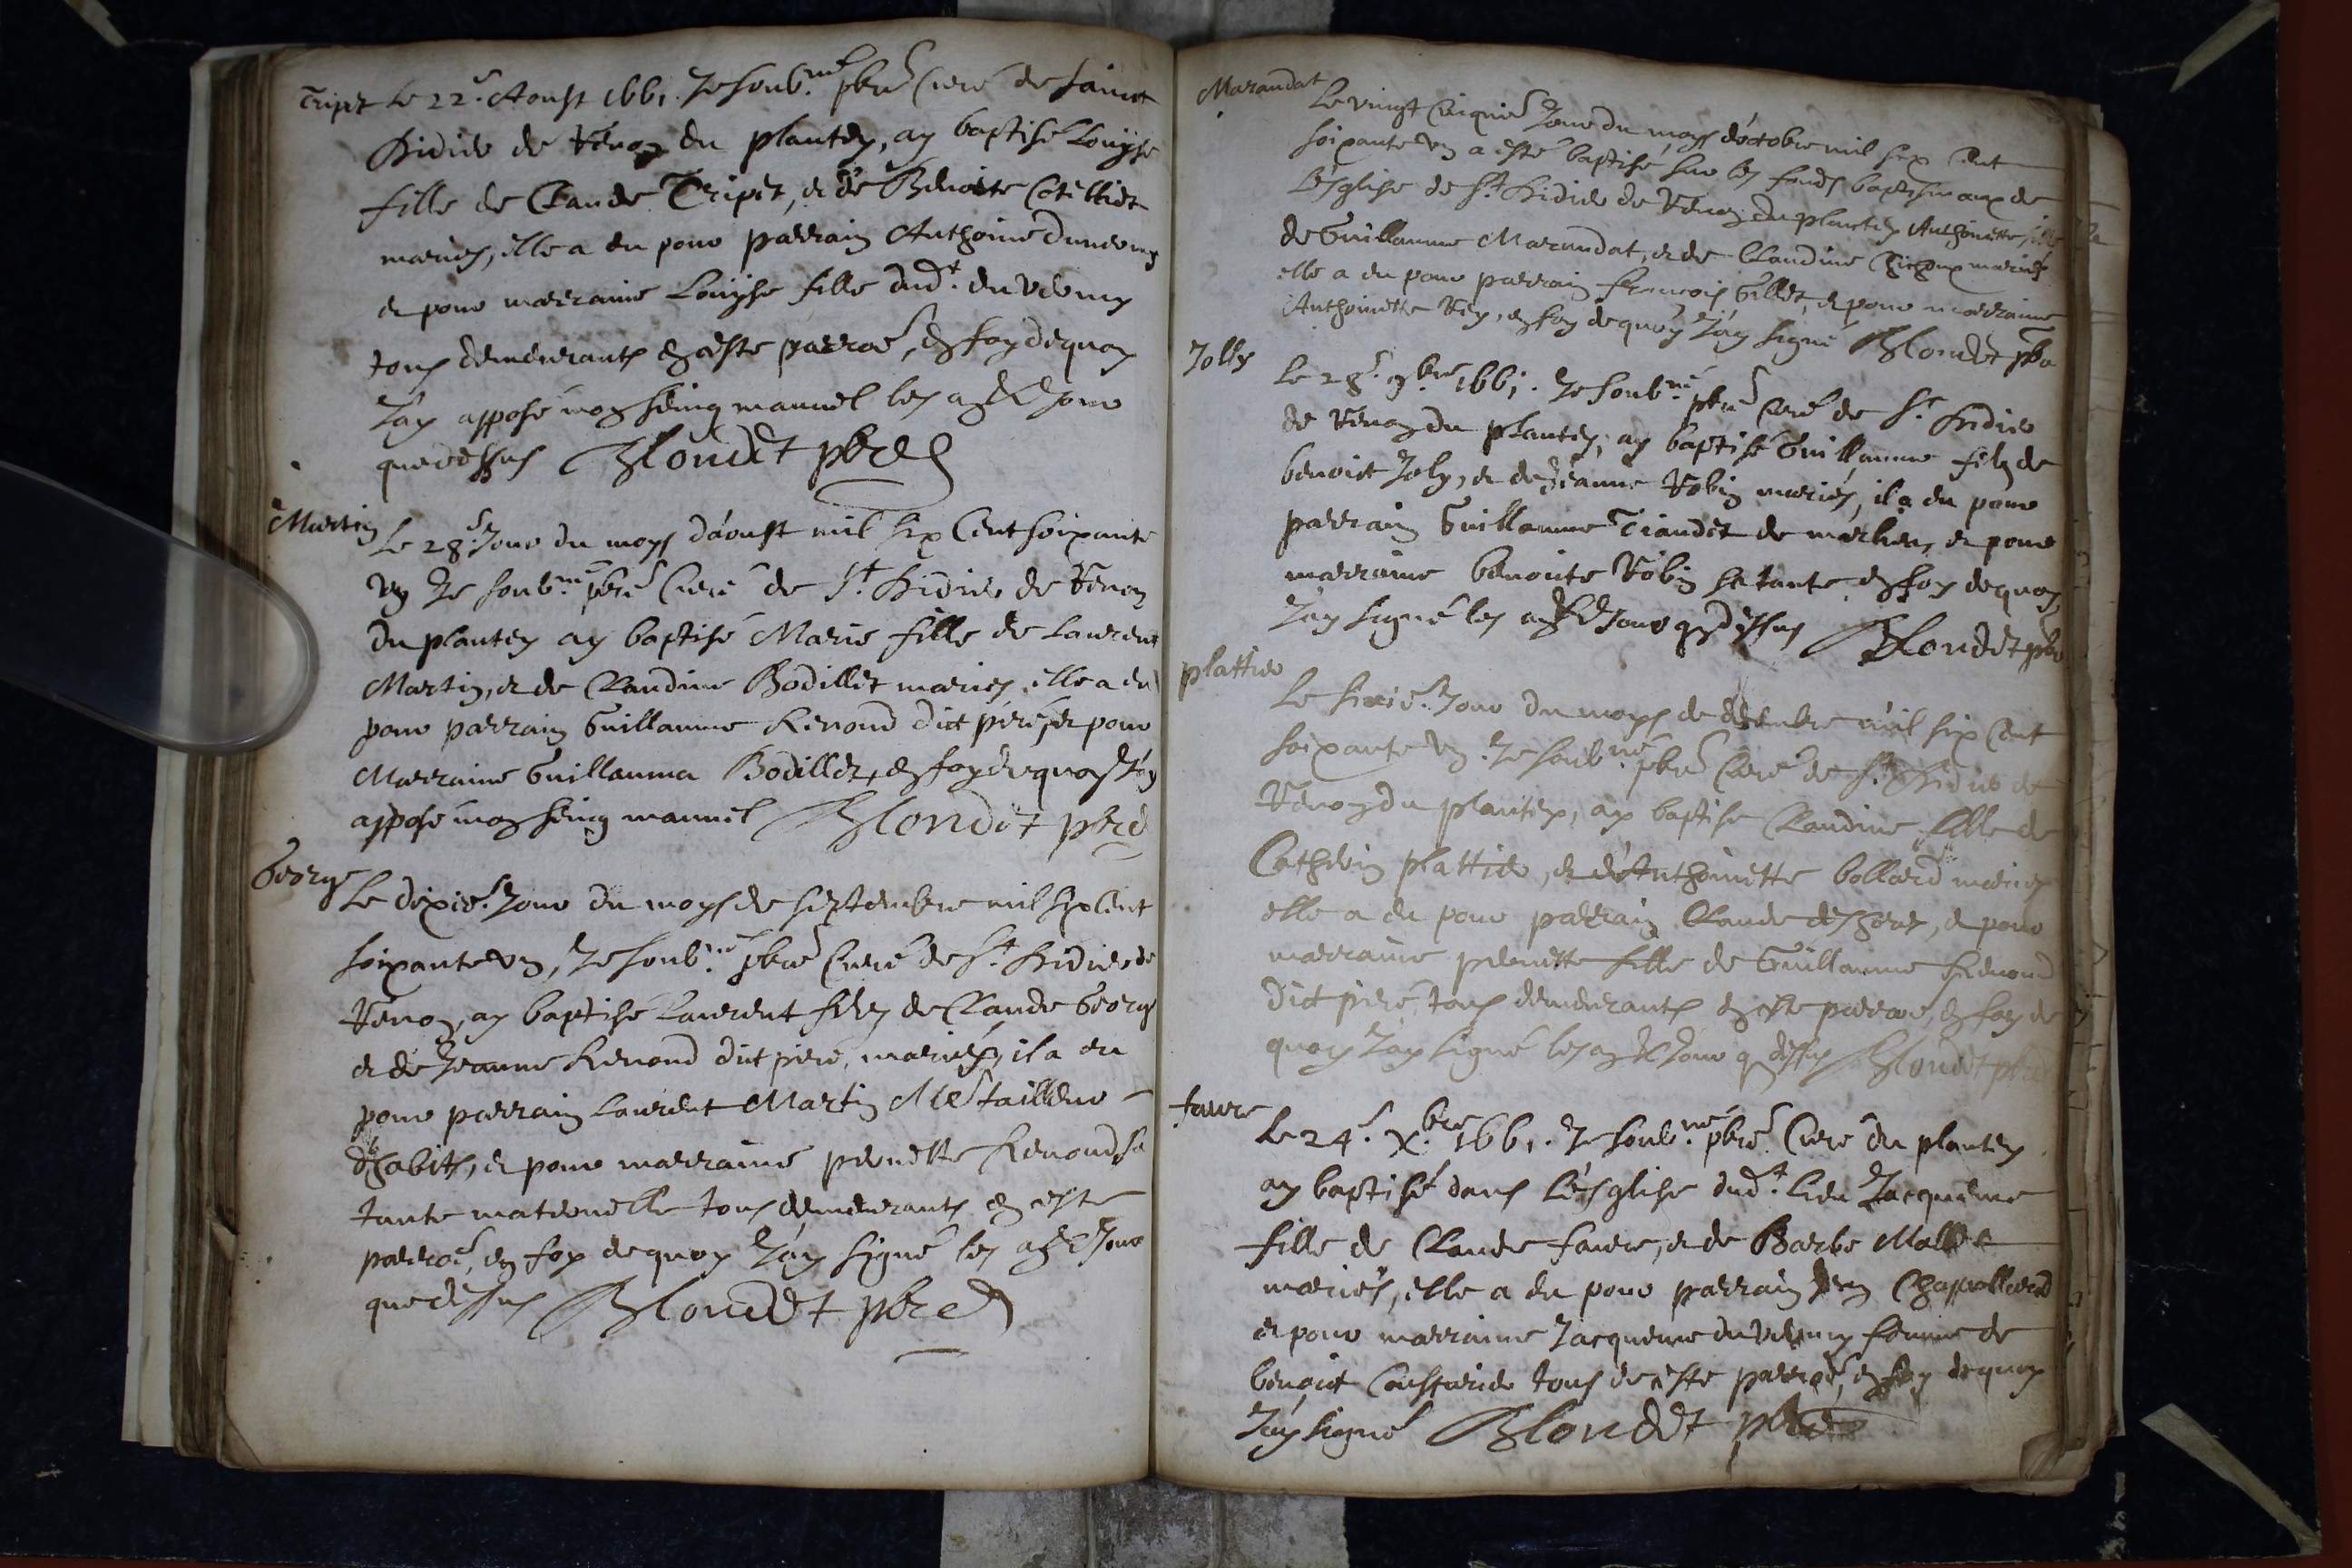 Tripet Le 22e. Aoust 1661. Je soubne. pbre Curé de sainct
Didier de Renon du plantey, ay baptisé Louyse
fille de Claude Tripet, et de Benoite Cotilliet
mariés, elle a eu pour parrain Anthoine duverney
et pour marraine Louyse fille dudt. duverney
tous demeurants en ceste parroe, en foy de quoy
J'ay apposé mon seing manuel les an et Jour
que dessus Blondet pbre
Martin Le 28e. Jour du moys d'aoust mil six Cent soixante
un Je soubne. pbre Curé de St. Didier de Renon
du plantey ay baptisé Marie fille de Laurent
Martin, et de Claudine Bodillet mariés, elle a eu
pour parrain Guillaume Renoud dict péré, et pour
Marraine Guillauma Bodillet, en foy de quoy J'ay
apposé mon seing manuel Blondet pbre
George Le dixie. Jour du moys de septembre mil six Cent
soixante un, Je soubne. pbre Curé de St. Didier de
Renon, ay baptisé Laurent filz de Claude George
et de Jeanne Renoud dict péré, mariés, il a eu
pour parrain Laurent Martin Me tailleur
d'habits, et pour marraine pernette Renoud sa
tante maternelle tous demeurants en ceste
parroe, en foy de quoy J'ay signé les an et Jour
que dessus Blondet pbre
Marandat Le vingt Cinquie Jour du moys d'octobre mil six Cent
soixante un a esté baptisé sur les fonds baptismaux de
L'ésglise de St. Didier de Renon du plantey Anthoinette fille
de Guillaume Marandat, et de Claudine mariés
elle a eu pour parrain francois Gillet, et pour marraine
Anthoinette Rey, en foy de quoy J'ay signé Blondet pbre
Jolly Le 28e. 9bre 1661. Je soubne. pbre Curé de St. Didier
de Renon du plantey, ay baptisé Guillaume filz de
benoict Joly, et de Jeanne Robin mariés, il a eu pour
parrain Guillaume Tiandet de marlieu, et pour
marraine benoite Robin sa tante, en foy de quoy
J'ay signé les an et Jour q dessus Blondet pbre
plattier Le sixie. Jour du moys de décembre mil six Cent
soixante un. Je soubne. pbre Curé de St. Didier de
Renon du plantey, ay baptisé Claudine fille de
Catherin plattier, et d'Anthoinette bollard mariés
elle a eu pour parrain Claude , et pour
marraine pernette fille de Guillaume Renoud
dict péré, tous demeurants en ceste parroe, en foy de
quoy J'ay signé les an et Jour q dessus Blondet pbre
favre Le 24e. Xbre 1661. Je soubne. pbre Curé du plantey
ay baptisé dans L'ésglise dudt. lieu Jacqueme
fille de Claude favre, et de Barbe Mallet
mariés, elle a eu pour parrain Jean Chapolliard
et pour marraine Jacqueme du Verney femme de
benoict tous de ceste parroe, en foy de quoy
J'ay signé Blondet pbre